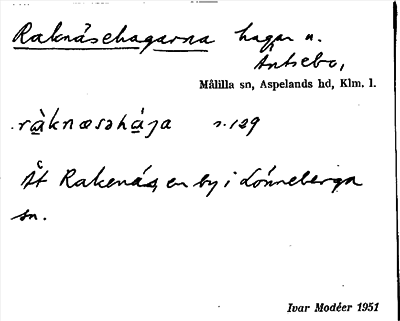 Raknäsehagarna hagar u.
Äntsebo,
Målilla sn, Aspelands hd, Klm. l.
.ràknæsəhàga s. 129
Åt Rakenäs, en by i Lönneberga
sn.
Ivar Modéer 1951